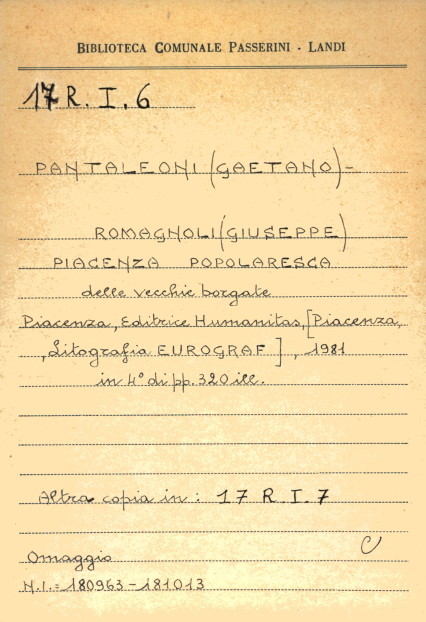 BIBLIOTECA COMUNALE PASSERINI - LANDI
17 R. I. 6
PANTALEONI (GAETANO) -
ROMAGNOLI (GIUSEPPE)
PIACENZA POPOLARESCA
delle vecchie borgate
Piacenza, Editrice Humanitas, [Piacenza,
, Litografia EUROGRAF ] , 1981
in 4° di pp. 320 ill.
Altra copia in : 17 R. I. 7
C
Omaggio
N.I. = 180963 - 181013